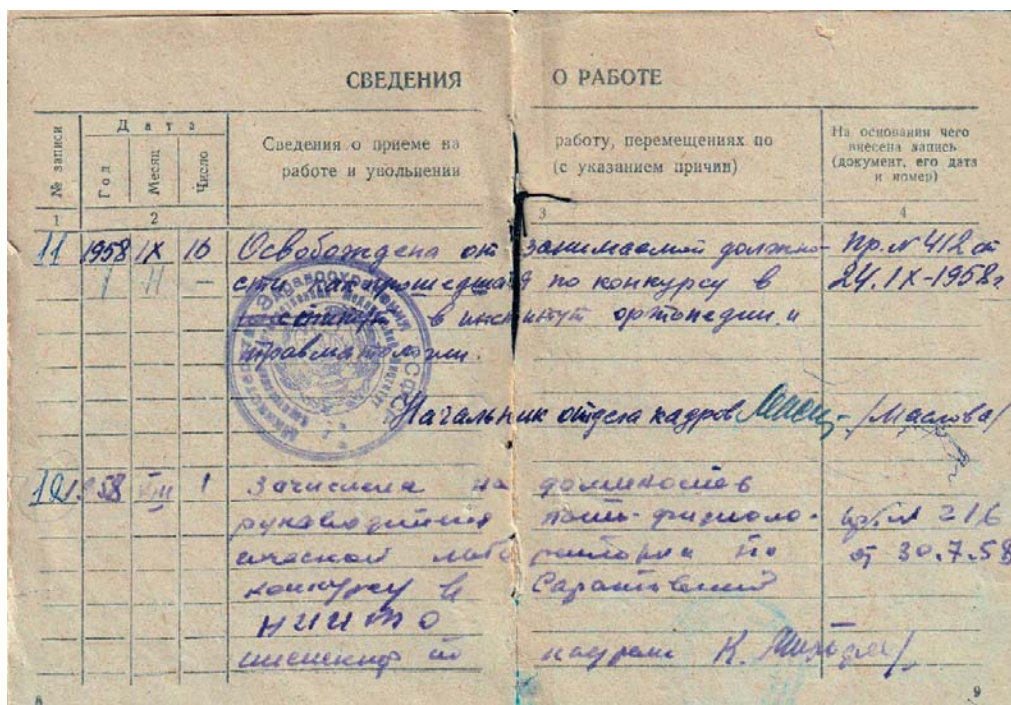 СВЕДЕНИЯ О РАБОТЕ
№ записи
Дата
Год
Месяц
Число
Сведения о приеме на работу, перемещениях по
работе и увольнении (с указанием причин)
На основании чего
внесена запись
(документ, его дата
и номер)
1 2 3 4
11 1958 IX 16 Освобождена от занимаемой должно- Пр. № 412 от
сти как прошедшая по конкурсу в 24.IX-1958г.
в институт ортопедии и
травматологии.
Начальник отдела кадров /Маслова/
12 1958 VIII 1 Зачислена на должность
руководителя пат-физиоло- пр. № 216
гической лаборатории по от 30.7.58
конкурсу в Саратовский
НИИТО
инспектор по кадрам К.
8 9